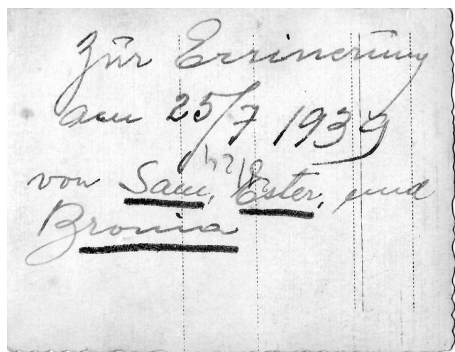 Zur Errinerung
am 25/7 1939
von Sam, Ester, und
Bronia